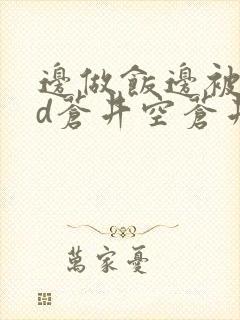 邊做飯邊被
d蒼井空蒼井
萬家憂